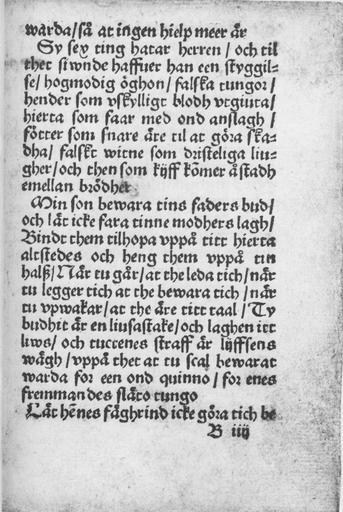 warda/så at ingen hielp meer är
Sy sex ting hatar herren/och til
thet siwnde haffuer han een styggil-
se/hogmodig öghon/falska tungor/
hender som vskylligt blodh vtgiuta/
hierta som faar med ond anslagh/
fötter som snare äre til at göra ska-
dha/falskt witne som dristeliga liu-
gher/och then som kijff kōmer åstadh
emellan brödher
Min son bewara tins faders bud/
och lät icke fara tinne modhers lagh/
Bindt them tilhopa vppå titt hierta
altstedes och heng them vppå tin
halß/När tu går/at the leda tich/när
tu legger tich at the bewara tich/när
tu vpwakar/at the äre titt taal/Ty
budhit är en liusastake/och laghen itt
liws/och tucctenes straff är lijffsens
wägh/vppå thet at tu scal bewarat
warda for een ond quinno/for enes
fremmandes släto tungo
Låt hēnes fäghrind icke göra tich be
B iiij